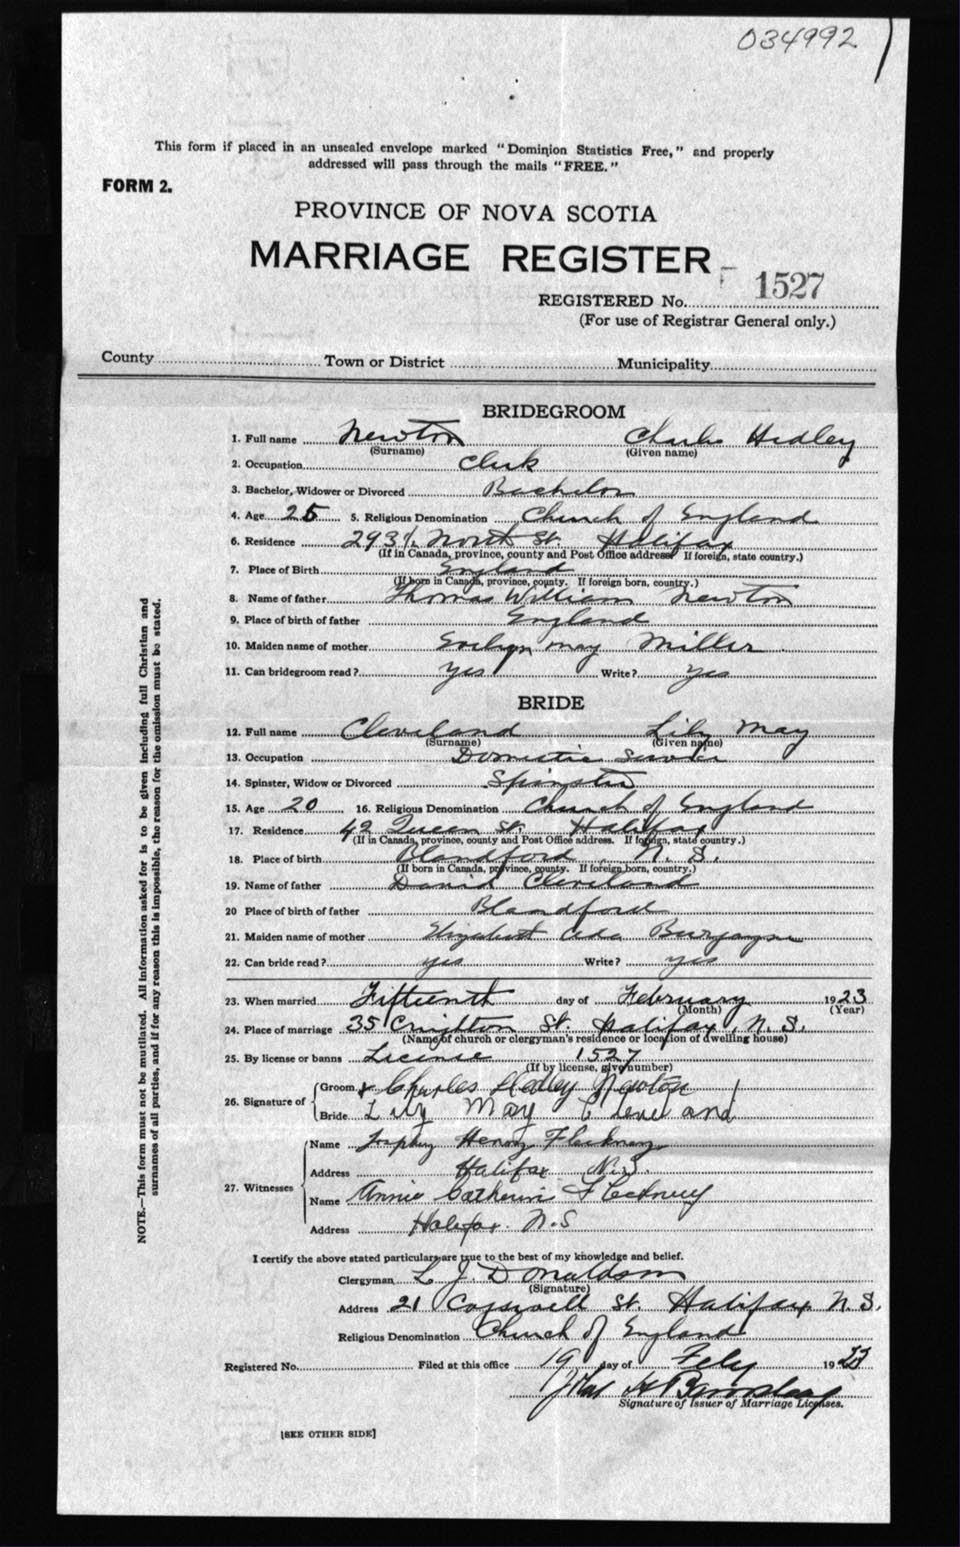 034992
This form if placed in an unsealed envelope marked "Dominion Statistics Free," and properly
addressed will pass through the mails "FREE."
FORM 2.
PROVINCE OF NOVA SCOTIA
MARRIAGE REGISTER
REGISTERED No. 1527
(For use of Registrar General only.)
County Town or District Municipality
BRIDEGROOM
1. Full name Newton Charles Hedley
(Surname) (Given name)
2. Occupation Clerk
3. Bachelor, Widower or Divorced Bachelor
4. Age 25 5. Religious Denomination Church of England
6. Residence 293½ North St. Halifax
(If in Canada, province, county and Post Office address. If foreign, state country.)
7. Place of Birth England
(If born in Canada, province, county. If foreign born, country.)
8. Name of father Thomas William Newton
9. Place of birth of father England
10. Maiden name of mother Evelyn May Miller
11. Can bridegroom read? yes Write? yes
BRIDE
12. Full name Cleveland Lily May
(Surname) (Given name)
13. Occupation Domestic
14. Spinster, Widow or Divorced Spinster
15. Age 20 16. Religious Denomination Church of England
17. Residence 42 Queen St. Halifax
(If in Canada, province, county and Post Office address. If foreign, state country.)
18. Place of birth Blandford N. S.
(If born in Canada, province, county. If foreign born, country.)
19. Name of father David Cleveland
20 Place of birth of father Blandford
21. Maiden name of mother Elizabeth Ada Burgoyne
22. Can bride read? yes Write? yes
23. When married Fifteenth day of February 1923
(Month) (Year)
24. Place of marriage 35 Creighton St. Halifax, N. S.
(Name of church or clergyman's residence or location of dwelling house)
25. By license or banns License 1527
(If by license, give number)
26. Signature of
Groom Charles Hedley Newton
Bride Lily May Cleveland
27. Witnesses
Name Henry
Address Halifax N.S.
Name Annie Catherine
Address Halifax. N.S
I certify the above stated particulars are true to the best of my knowledge and belief.
Clergyman L J. Donaldson
(Signature)
Address 21 Cogswell St. Halifax N. S.
Religious Denomination Church of England
Registered No. Filed at this office 19 day of Feby 1923
Signature of Issuer of Marriage Licenses.
[SEE OTHER SIDE]
NOTE.—This form must not be mutilated. All information asked for is to be given including full Christian and
surnames of all parties, and if for any reason this is impossible, the reason for the omission must be stated.